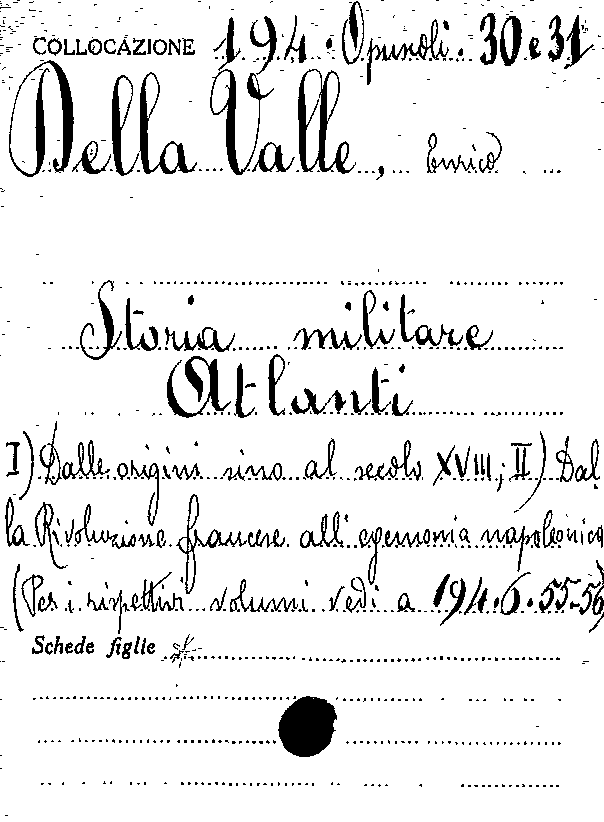 COLLOCAZIONE 194. Opuscoli. 30 e 31
Della Valle, Enrico
Storia militare
Atlanti
I) Dalle origini sino al secolo XVIII; II) Dal
la Rivoluzione francese all'egemonia napoleonica
(Per i rispettivi volumi vedi a 194.6.55-56)
Schede figlie